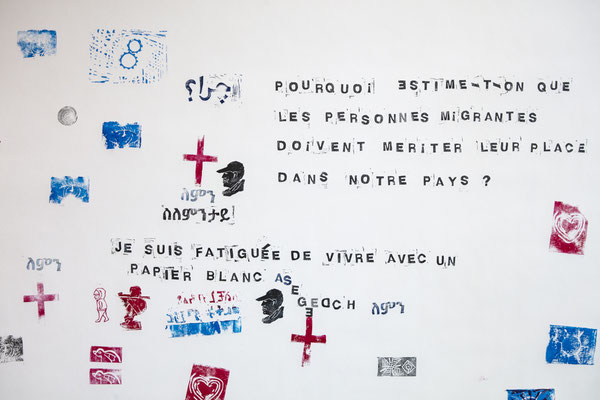 چرا؟
POURQUOi ESTIME-T-ON QUE
LES PERSONNES MIGRANTES
DOIVENT MERITER LEUR PLACE
DANS NOTRE PAYS ?
ለምን
ስለምንታይ
JE SUIS FATIGUÉE DE VIVRE AVEC UN
PAPIER BLANC AS
ለምን
ለምን